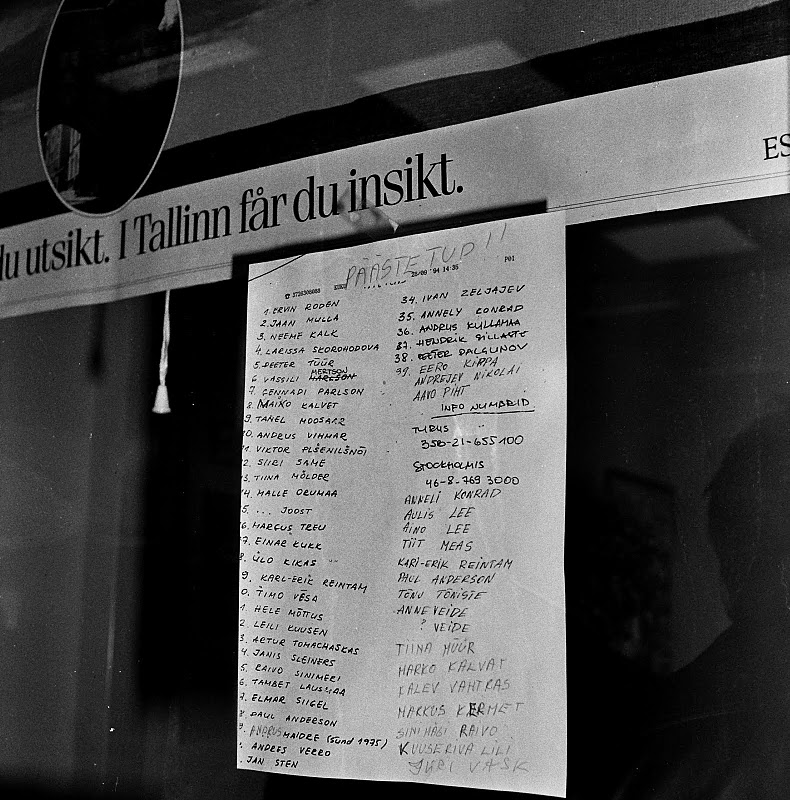 du utsikt. I Tallinn får du insikt.
ES
PÄÄSTETUD!!
3726308088 28/09 '94 14:35 P01
1. ERVIN RODEN
2. JAAN MULLA
3. NEEME KALK
4. LARISSA SKOROHODOVA
5. PEETER TÜÜR
6 VASSILI MERTSON
7. GENNADI PARLSON
8. MAIKO KALVET
9. TANEL MOOSAAR
0. ANDRUS VIHMAR
1. VIKTOR PLŠENILŠNÕI
2. SIIRI SAME
3. TIINA MÖLDER
4. MALLE ORUMAA
5. ... JOOST
6. MARGUS TREU
7. EINAR KUKK
8. ÜLO KIKAS
9. KARL-ERIK REINTAM
0. TIMO VÕSA
1. HELE MÕTTUS
2. LEILI KUUSEN
3. ARTUR TOMACHASKAS
4. JANIS SLEINERS
5. RAIVO SINIMERI
6. TAMBET LAUSMAA
7. ELMAR SIIGEL
8. PAUL ANDERSON
9. ANDRUS MAIDRE (SÜND 1975)
. ANDRES VERRO
. JAN STEN
34. IVAN ZELJAJEV
35. ANNELY KONRAD
36. ANDRUS KULLAMAA
37. HENDRIK SILLASTE
38. PEETER PALGUNOV
39. EERO KIPPA
ANDREJEV NIKOLAI
AAVO PIHT
INFO NUMBRID
TURUS
358-21-655100
STOCKHOLMIS
46-8-769 3000
ANNELI KONRAD
AULIS LEE
AINO LEE
TIIT MEAS
KARI-ERIK REINTAM
PAUL ANDERSON
TÕNU TÕNISTE
ANNE VEIDE
? VEIDE
TIINA MÜÜR
MARKO KALVAT
KALEV VAHTRAS
MARKUS KERMET
SINIMÄGI RAIVO
KUUSERIVA LILI
JÜRI VASK